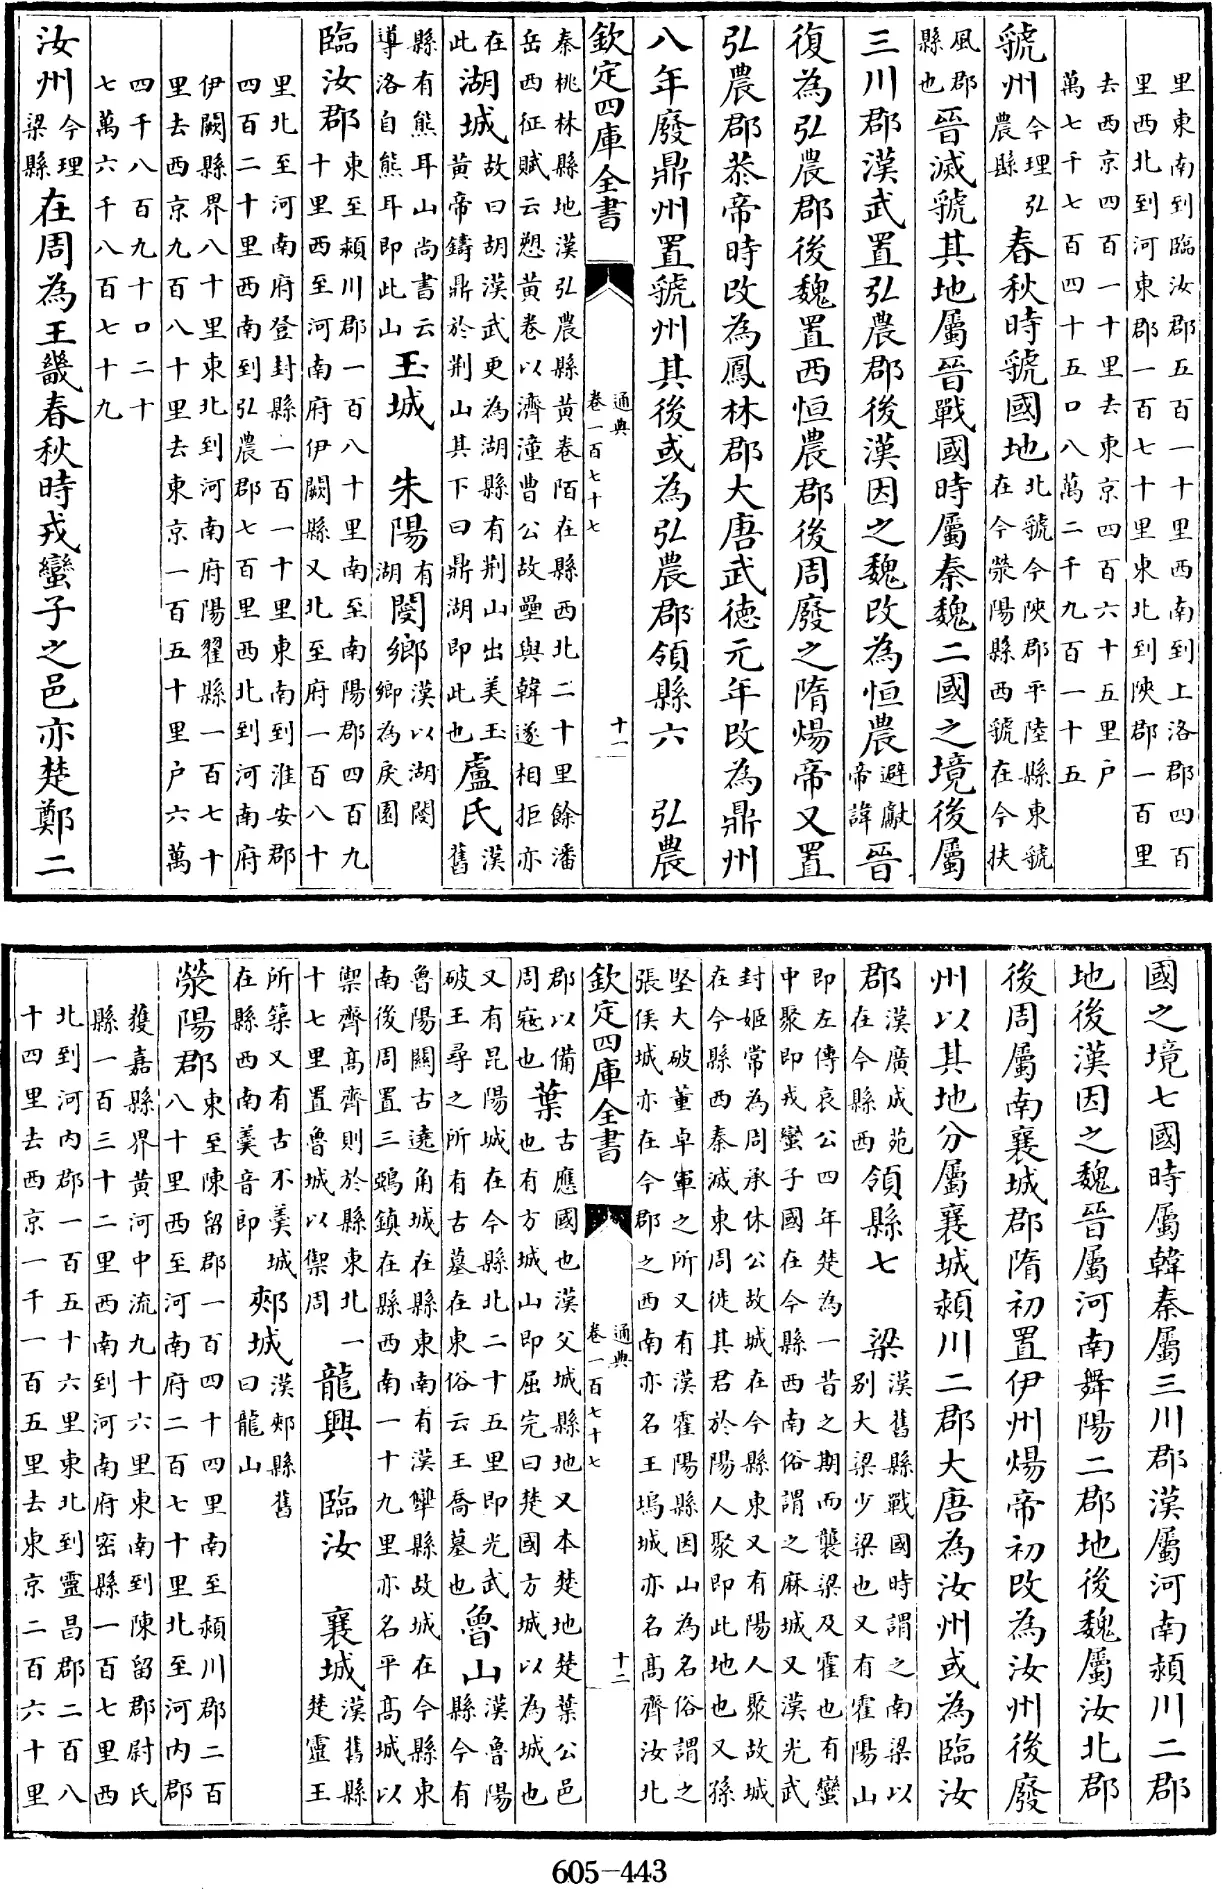 里東南到臨汝郡五百一十里西南到上洛郡四百
里西北到河東郡一百七十里東北到陜郡一百里
去西京四百一十里去東京四百六十五里户
萬七千七百四十五口八萬二千九百一十五
虢州今理弘農縣春秋時虢國地北虢今陜郡平陸縣東虢在今滎陽縣西虢在今扶
風郡縣也晉滅虢其地屬晉戰國時屬秦魏二國之境後屬
三川郡漢武置弘農郡後漢因之魏改為恒農避獻帝諱晉
復為弘農郡後魏置西恒農郡後周廢之隋煬帝又置
弘農郡恭帝時改為鳳林郡大唐武德元年改為鼎州
八年廢鼎州置虢州其後或為弘農郡領縣六 弘農
欽定四庫全書 通典 卷一百七十七 十一
秦桃林縣地漢弘農縣黃卷陌在縣西北二十里餘潘
岳西征賦云愬黃卷以濟潼曹公故壘與韓遂相拒亦
在此湖城故曰胡漢武更為湖縣有荆山出美玉黃帝鑄鼎於荆山其下曰鼎湖即此也盧氏漢舊
縣有熊耳山尚書云導洛自熊耳即此山玉城 朱陽有湖閿鄉漢以湖閿鄉為戾園
臨汝郡東至潁川郡一百八十里南至南陽郡四百九十里西至河南府伊闕縣又北至府一百八十
里北至河南府登封縣一百一十里東南到淮安郡
四百二十里西南到弘農郡七百里西北到河南府
伊闕縣界八十里東北到河南府陽翟縣一百七十
里去西京九百八十里去東京一百五十里户六萬
四千八百九十口二十
七萬六千八百七十九
汝州今理梁縣在周為王畿春秋時戎蠻子之邑亦楚鄭二
國之境七國時屬韓秦屬三川郡漢屬河南潁川二郡
地後漢因之魏晉屬河南舞陽二郡地後魏屬汝北郡
後周屬南襄城郡隋初置伊州煬帝初改為汝州後廢
州以其地分屬襄城潁川二郡大唐為汝州或為臨汝
郡漢廣成苑在今縣西領縣七 梁漢舊縣戰國時謂之南梁以别大梁少梁也又有霍陽山
即左傳哀公四年楚為一昔之期而襲梁及霍也有蠻
中聚即戎蠻子國在今縣西南俗謂之麻城又漢光武
封姬常為周承休公故城在今縣東又有陽人聚故城
在今縣西秦滅東周徙其君於陽人聚即此地也又孫
堅大破董卓軍之所又有漢霍陽縣因山為名俗謂之
張侯城亦在今郡之西南亦名王塢城亦名高齊汝北
欽定四庫全書 通典 卷一百七十七 十二
郡以備周宼也葉古應國也漢父城縣地又本楚地楚葉公邑也有方城山即屈完曰楚國方城以為城也
又有昆陽城在今縣北二十五里即光武破王尋之所有古墓在東俗云王喬墓也魯山漢魯陽縣今有
魯陽關古遶角城在縣東南有漢犨縣故城在今縣東
南後周置三鵶鎮在縣西南一十九里亦名平高城以
禦齊高齊則於縣東北一十七里置魯城以禦周 龍興 臨汝 襄城漢舊縣楚靈王
所築又有古不羹城在縣西南羹音即 郟城漢郟縣舊曰龍山
滎陽郡東至陳留郡一百四十四里南至潁川郡二百八十里西至河南府二百七十里北至河内郡
獲嘉縣界黄河中流九十六里東南到陳留郡尉氏
縣一百三十二里西南到河南府密縣一百七里西
北到河内郡一百五十六里東北到靈昌郡二百八
十四里去西京一千一百五里去東京二百六十里
605-443